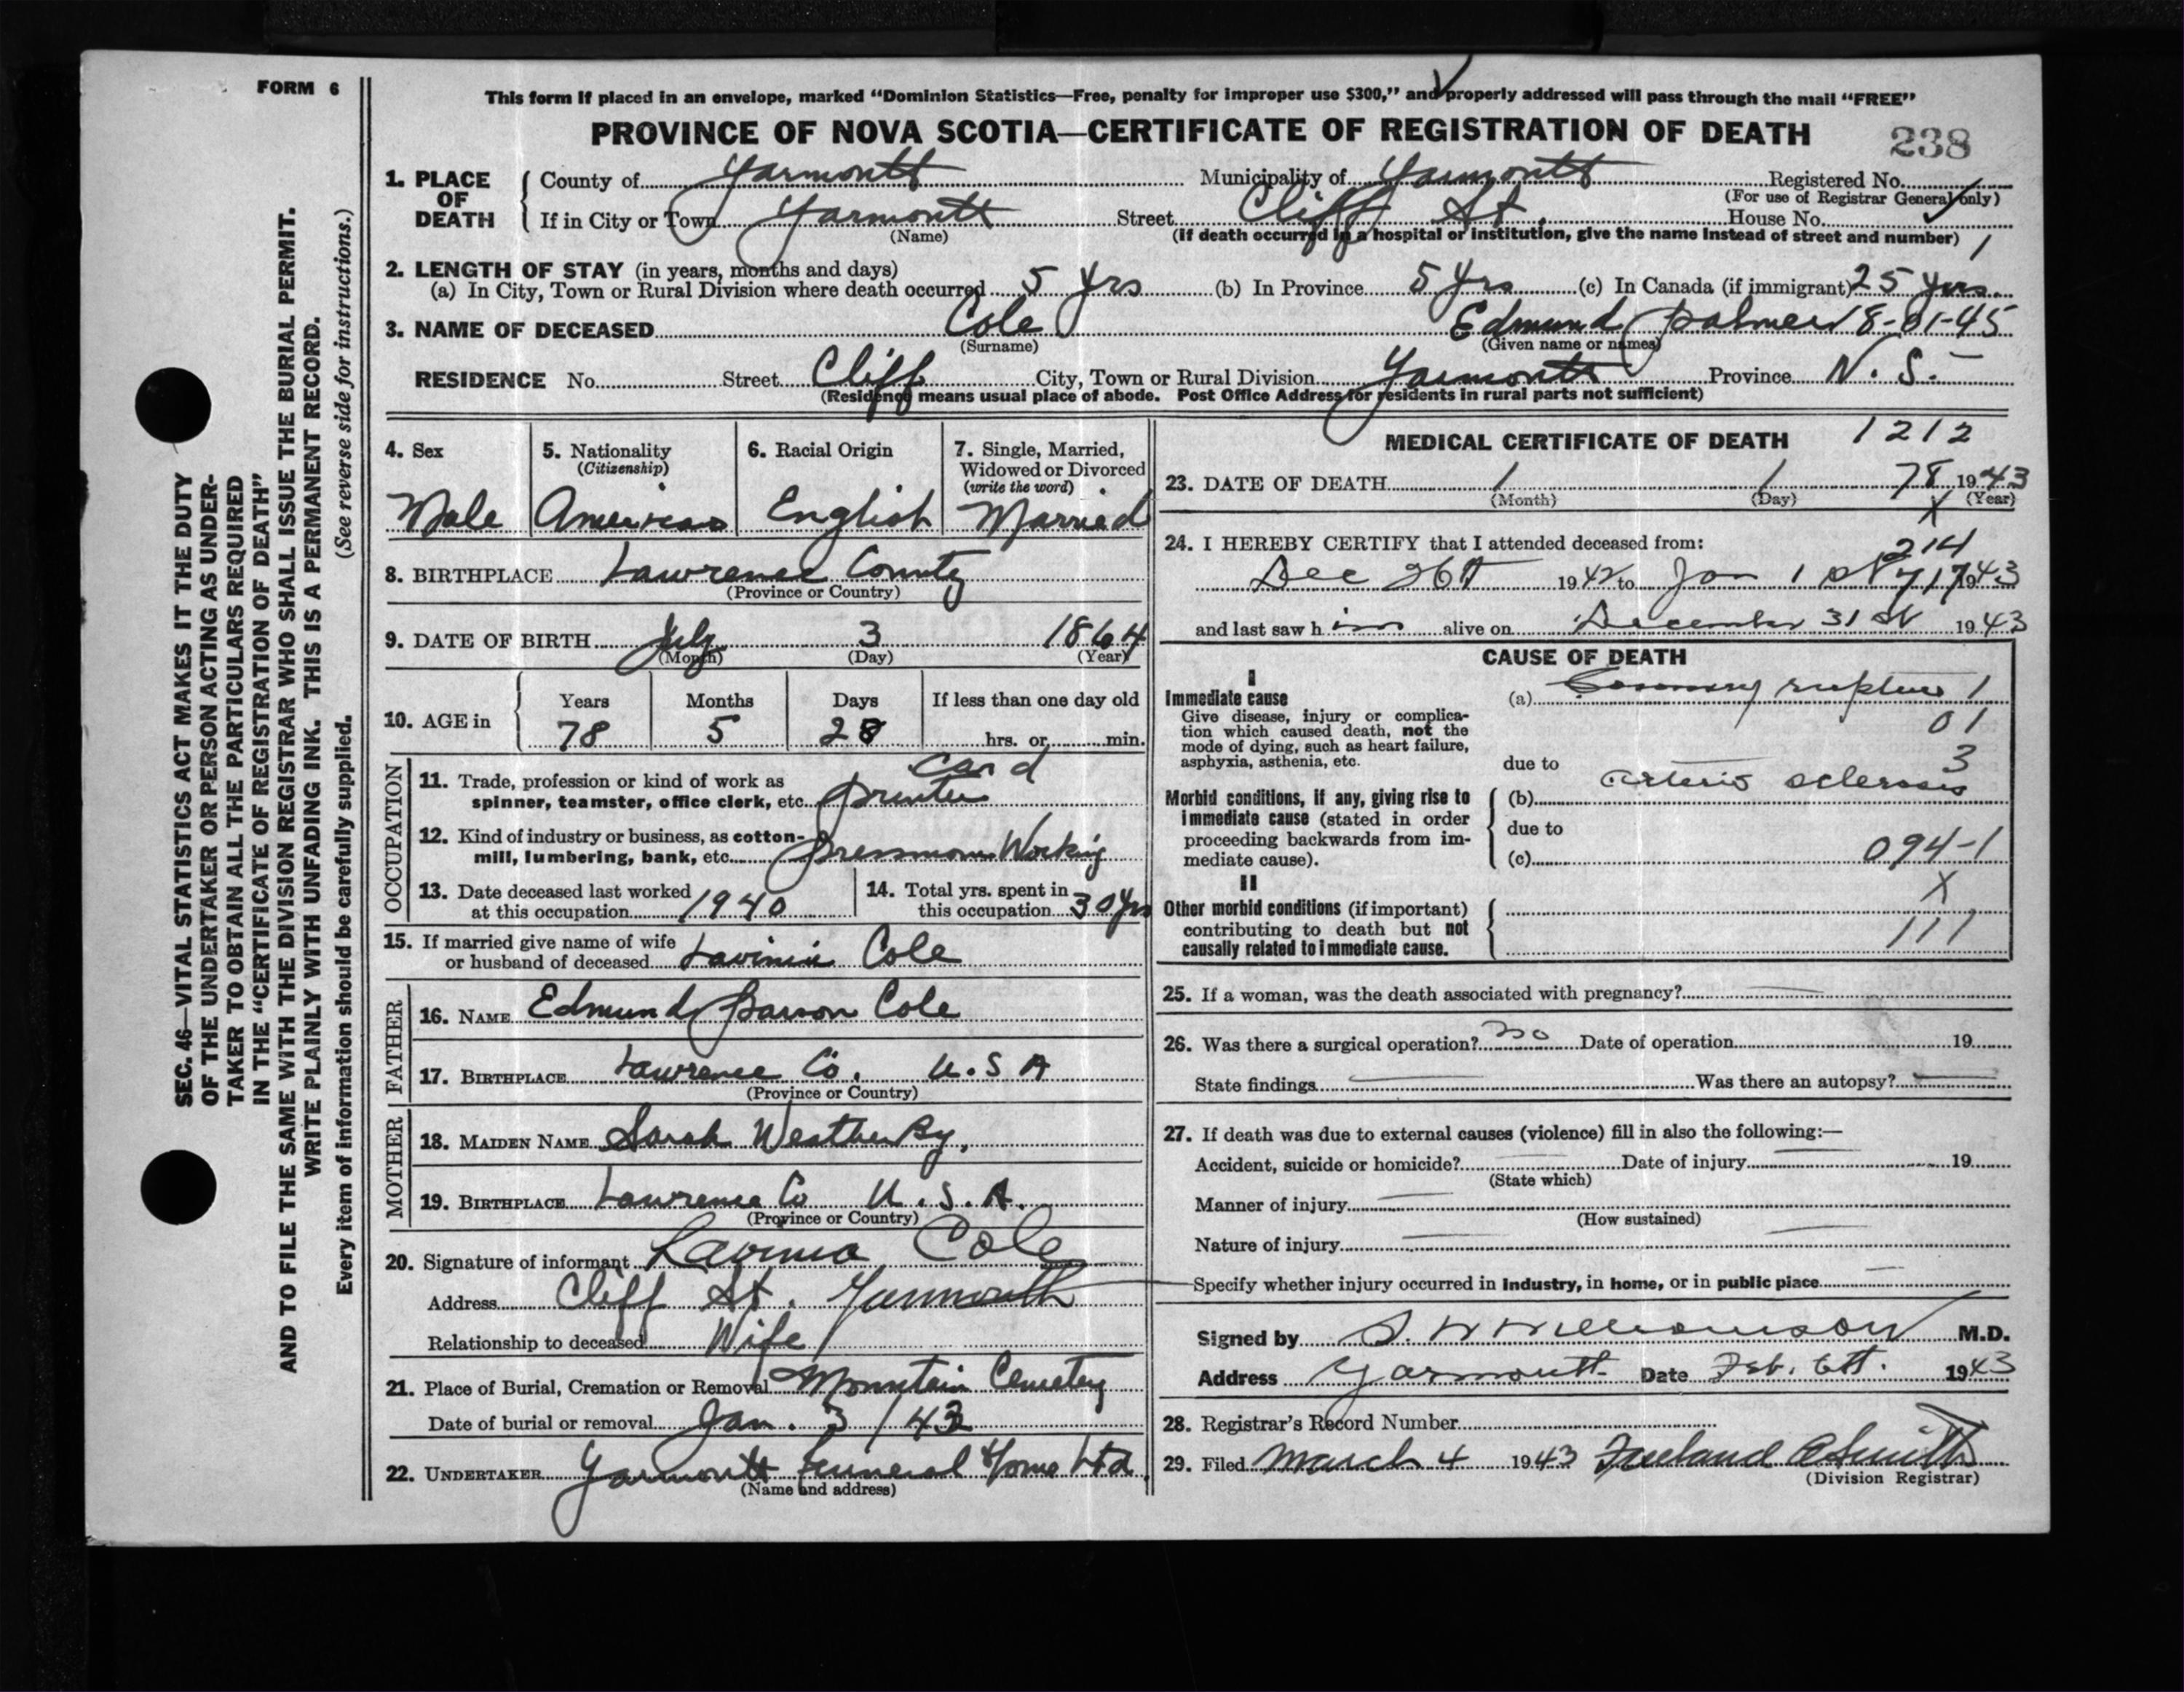 FORM 6
This form if placed in an envelope, marked “Dominion Statistics—Free, penalty for improper use $300,” and properly addressed will pass through the mail “FREE”
PROVINCE OF NOVA SCOTIA—CERTIFICATE OF REGISTRATION OF DEATH 238
1. PLACE OF DEATH
County of Yarmouth Municipality of Yarmouth Registered No.
(For use of Registrar General only)
If in City or Town Yarmouth Street Cliff St. House No.
(Name) (If death occurred in a hospital or institution, give the name instead of street and number) 1
2. LENGTH OF STAY (in years, months and days)
(a) In City, Town or Rural Division where death occurred 5 yrs (b) In Province 5 yrs (c) In Canada (if immigrant) 25 yrs.
3. NAME OF DECEASED Cole Edmund Palmer 8-01-45
(Surname) (Given name or names)
RESIDENCE No. Street Cliff City, Town or Rural Division Yarmouth Province N. S.
(Residence means usual place of abode. Post Office Address for residents in rural parts not sufficient)
4. Sex Male
5. Nationality (Citizenship) American
6. Racial Origin English
7. Single, Married, Widowed or Divorced (write the word) Married
8. BIRTHPLACE Lawrence County
(Province or Country)
9. DATE OF BIRTH July 3 1864
(Month) (Day) (Year)
10. AGE in
Years Months Days If less than one day old
78 5 28 hrs. or min.
OCCUPATION
11. Trade, profession or kind of work as
spinner, teamster, office clerk, etc. card printer
12. Kind of industry or business, as cotton-
mill, lumbering, bank, etc. Pressman Working
13. Date deceased last worked
at this occupation 1940
14. Total yrs. spent in
this occupation 30 yrs
15. If married give name of wife
or husband of deceased Lavinia Cole
FATHER
16. NAME Edmund Parson Cole
17. BIRTHPLACE Lawrence Co. U.S A
(Province or Country)
MOTHER
18. MAIDEN NAME Sarah WeatherBy,
19. BIRTHPLACE Lawrence Co U.S.A.
(Province or Country)
20. Signature of informant Lavinia Cole
Address Cliff St. Yarmouth
Relationship to deceased Wife
21. Place of Burial, Cremation or Removal Mountain Cemetery
Date of burial or removal Jan. 3 / 43
22. UNDERTAKER Yarmouth Funeral Home Ltd
(Name and address)
MEDICAL CERTIFICATE OF DEATH 1212
23. DATE OF DEATH 1 1 78 1943
(Month) (Day) X (Year)
24. I HEREBY CERTIFY that I attended deceased from:
214
Dec 26th 1942 to Jan 1 st 717 1943
and last saw h im alive on December 31 st 1943
CAUSE OF DEATH
I
Immediate cause
(a) Coronary rupture 1
Give disease, injury or complica-
tion which caused death, not the
mode of dying, such as heart failure,
asphyxia, asthenia, etc.
01
3
due to
Morbid conditions, if any, giving rise to
immediate cause (stated in order
proceeding backwards from im-
mediate cause).
(b) arterio sclerosis
due to
(c) 094-1
II
X
Other morbid conditions (if important)
contributing to death but not
causally related to immediate cause.
111
25. If a woman, was the death associated with pregnancy?
26. Was there a surgical operation? no Date of operation 19
State findings Was there an autopsy?
27. If death was due to external causes (violence) fill in also the following:—
Accident, suicide or homicide? Date of injury 19
(State which)
Manner of injury
(How sustained)
Nature of injury
Specify whether injury occurred in industry, in home, or in public place
Signed by S. W Williamson M.D.
Address Yarmouth Date Feb. 6th. 1943
28. Registrar's Record Number
29. Filed March 4 1943 Smith
(Division Registrar)
SEC. 46—VITAL STATISTICS ACT MAKES IT THE DUTY
OF THE UNDERTAKER OR PERSON ACTING AS UNDER-
TAKER TO OBTAIN ALL THE PARTICULARS REQUIRED
IN THE “CERTIFICATE OF REGISTRATION OF DEATH”
AND TO FILE THE SAME WITH THE DIVISION REGISTRAR WHO SHALL ISSUE THE BURIAL PERMIT.
WRITE PLAINLY WITH UNFADING INK. THIS IS A PERMANENT RECORD.
Every item of information should be carefully supplied. (See reverse side for instructions.)